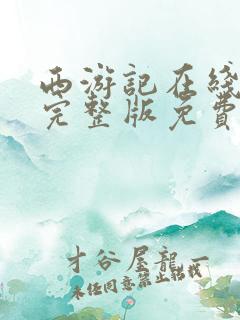 西游記在綫
完整版免費
才谷屋龍一
未任同意禁止轉載